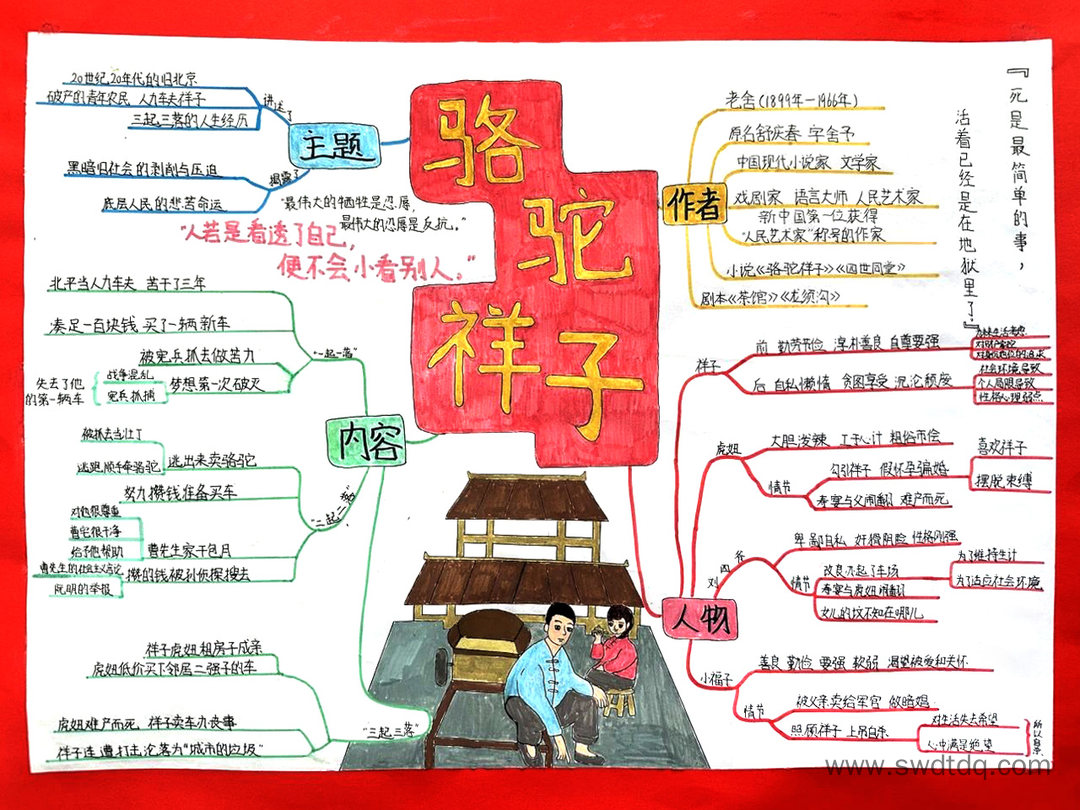 骆驼祥子
主题
讲述了
20世纪20年代的旧北京
破产的青年农民 人力车夫祥子
三起三落的人生经历
揭露了
黑暗旧社会的剥削与压迫
底层人民的悲苦命运
"最伟大的牺牲是忍辱,
最伟大的忍辱是反抗。"
"人若是看透了自己,
便不会小看别人。"
作者
老舍(1899年—1966年)
原名舒庆春 字舍予
中国现代小说家 文学家
戏剧家 语言大师 人民艺术家
新中国第一位获得
"人民艺术家"称号的作家
小说《骆驼祥子》《四世同堂》
剧本《茶馆》《龙须沟》
『死是最简单的事,
活着已经是在地狱里了』
内容
"一起一落"
北平当人力车夫 苦干了三年
凑足一百块钱 买了一辆新车
被宪兵抓去做苦力
梦想第一次破灭
战争混乱
宪兵抓捕
失去了他
的第一辆车
"二起二落"
逃出来卖骆驼
被抓去当壮丁
逃跑 顺手牵骆驼
努力攒钱准备买车
曹先生家干包月
对他很尊重
曹宅很干净
给予他帮助
攒的钱被孙侦探搜去
曹先生的社会主义言论
阮明的举报
"三起三落"
祥子虎妞租房子成亲
虎妞低价买下邻居二强子的车
虎妞难产而死 祥子卖车办丧事
祥子连遭打击沦落为"城市的垃圾"
人物
祥子
前 勤劳节俭 淳朴善良 自尊要强
后 自私懒惰 贪图享受 沉沦颓废
社会环境导致
个人局限导致
性格心理弱点
虎妞
大胆泼辣 工于心计 粗俗市侩
情节
勾引祥子 假怀孕骗婚
寿宴与父闹翻 难产而死
喜欢祥子
摆脱束缚
刘四爷
卑鄙自私 奸猾阴险 性格刚强
情节
改良办起了车场
寿宴与虎妞闹翻
女儿的坟不知在哪儿
为了维持生计
为了适应社会环境
小福子
善良 勤俭 要强 软弱 渴望被爱和关怀
情节
被父亲卖给军官 做暗娼
照顾祥子 上吊自杀
对生活失去希望
心中满是绝望
所以自杀
www.swdtdq.com